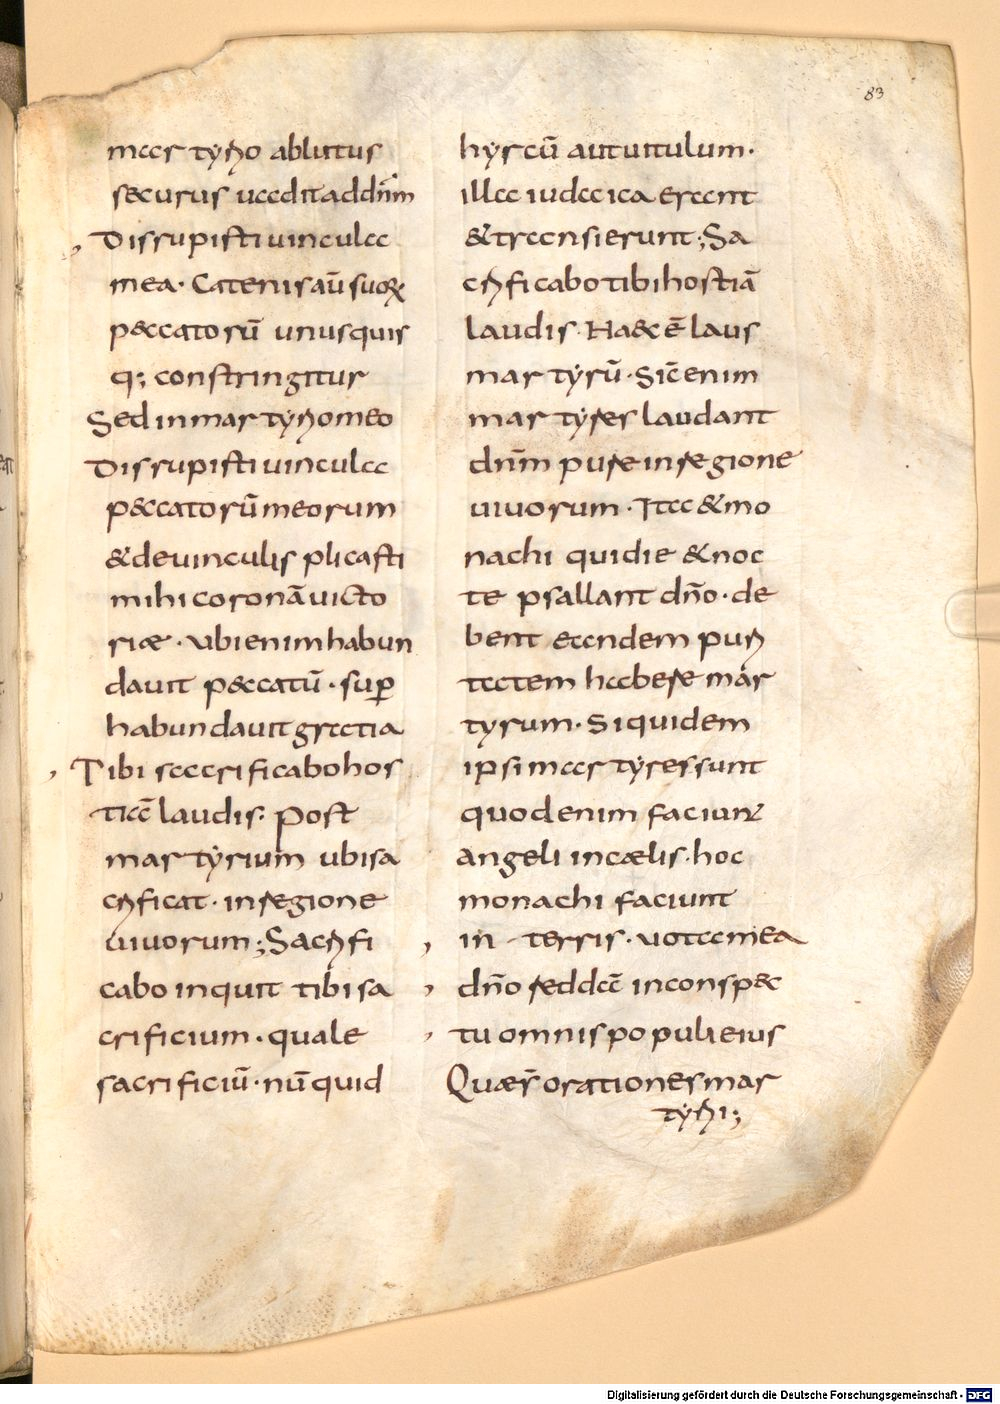 83
mar tyrio ablutus
securus uadit ad dnm
Disrupisti uincula
mea. Catenis aū suorꝝ
peccatorū unusquis
q; constringitur
Sed in martyrio meo
Disrupisti uincula
peccatorū meorum
& de uinculis plicasti
mihi coronā uicto
riæ. ubi enim habun
dauit peccatū. suꝑ
habundauit gratia
Tibi sacrificabo hos
tiā laudis. Post
martyrium ubi sa
crificat. in regione
uiuorum; Sacrifi
cabo inquit tibi sa
crificium. quale
sacrificiū. nūquid
hyrcū aut uitulum.
illa iudaica erant
& transierunt; Sa
crificabo tibi hostiā
laudis. Haec ē laus
martyrū. Sic enim
martyres laudant
dnm pure in regione
uiuorum. Ita & mo
nachi qui die & noc
te psallant dño. de
bent eandem puri
tatem habere mar
tyrum. Siquidem
ipsi martyres sunt
quod enim faciunt
angeli in cælis. hoc
monachi faciunt
in terris. uota mea
dño reddā in conspec
tu omnis populi eius
Quæs orationes mar
tyrii;
Digitalisierung gefördert durch die Deutsche Forschungsgemeinschaft - DFG